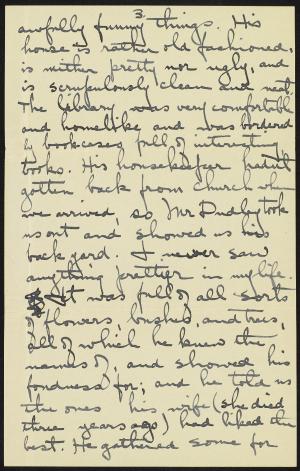 3.
awfully funny things. His
house is rather old fashioned,
is neither pretty nor ugly, and
is scrupulously clean and neat.
The library was very comfortable
and homelike and was bordered
by bookcases full of interesting
books. His housekeeper hadn't
gotten back from church when
we arrived, so Mr Dudley took
us out and showed us his
back yard. I never saw
anything prettier in my life.
It was full of all sorts
of flowers, bushes, and trees,
all of which he knew the
names of, and showed his
fondness for; and he told us
the ones his wife (she died
three years ago) had liked the
best. He gathered some for